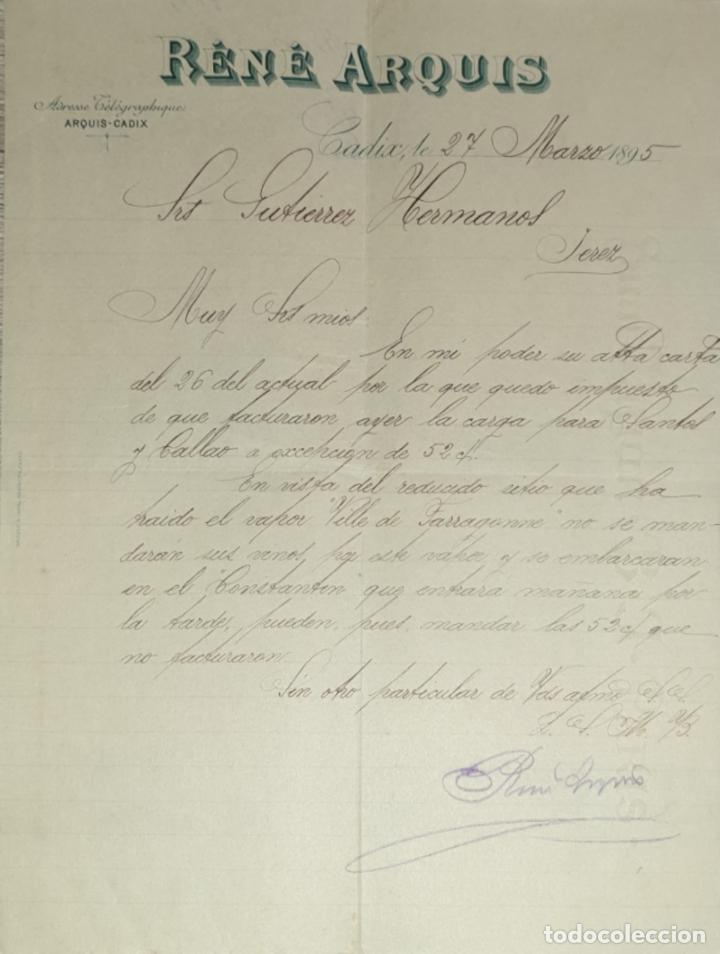 RÉNÉ ARQUIS
Adresse Télégraphique
ARQUIS-CADIX
Cadix, le 27 Marzo 1895
Srs Gutierrez Hermanos
Jerez
Muy Srs mios
En mi poder su atta carta
del 26 del actual por la que quedo impuesto
de que facturaron ayer la carga para Santos
y Callao a excepción de 52 c/.
En vista del reducido sitio que ha
traido el vapor "Ville de Tarragonne" no se man-
darán sus vinos por este vapor y se embarcaran
en el "Constantin" que entrará mañana por
la tarde, pueden pues mandar las 52 c/ que
no facturaron.
Sin otro particular de Vds afmo S. S.
Q. S. M. B.
René Arquis
todocoleccion